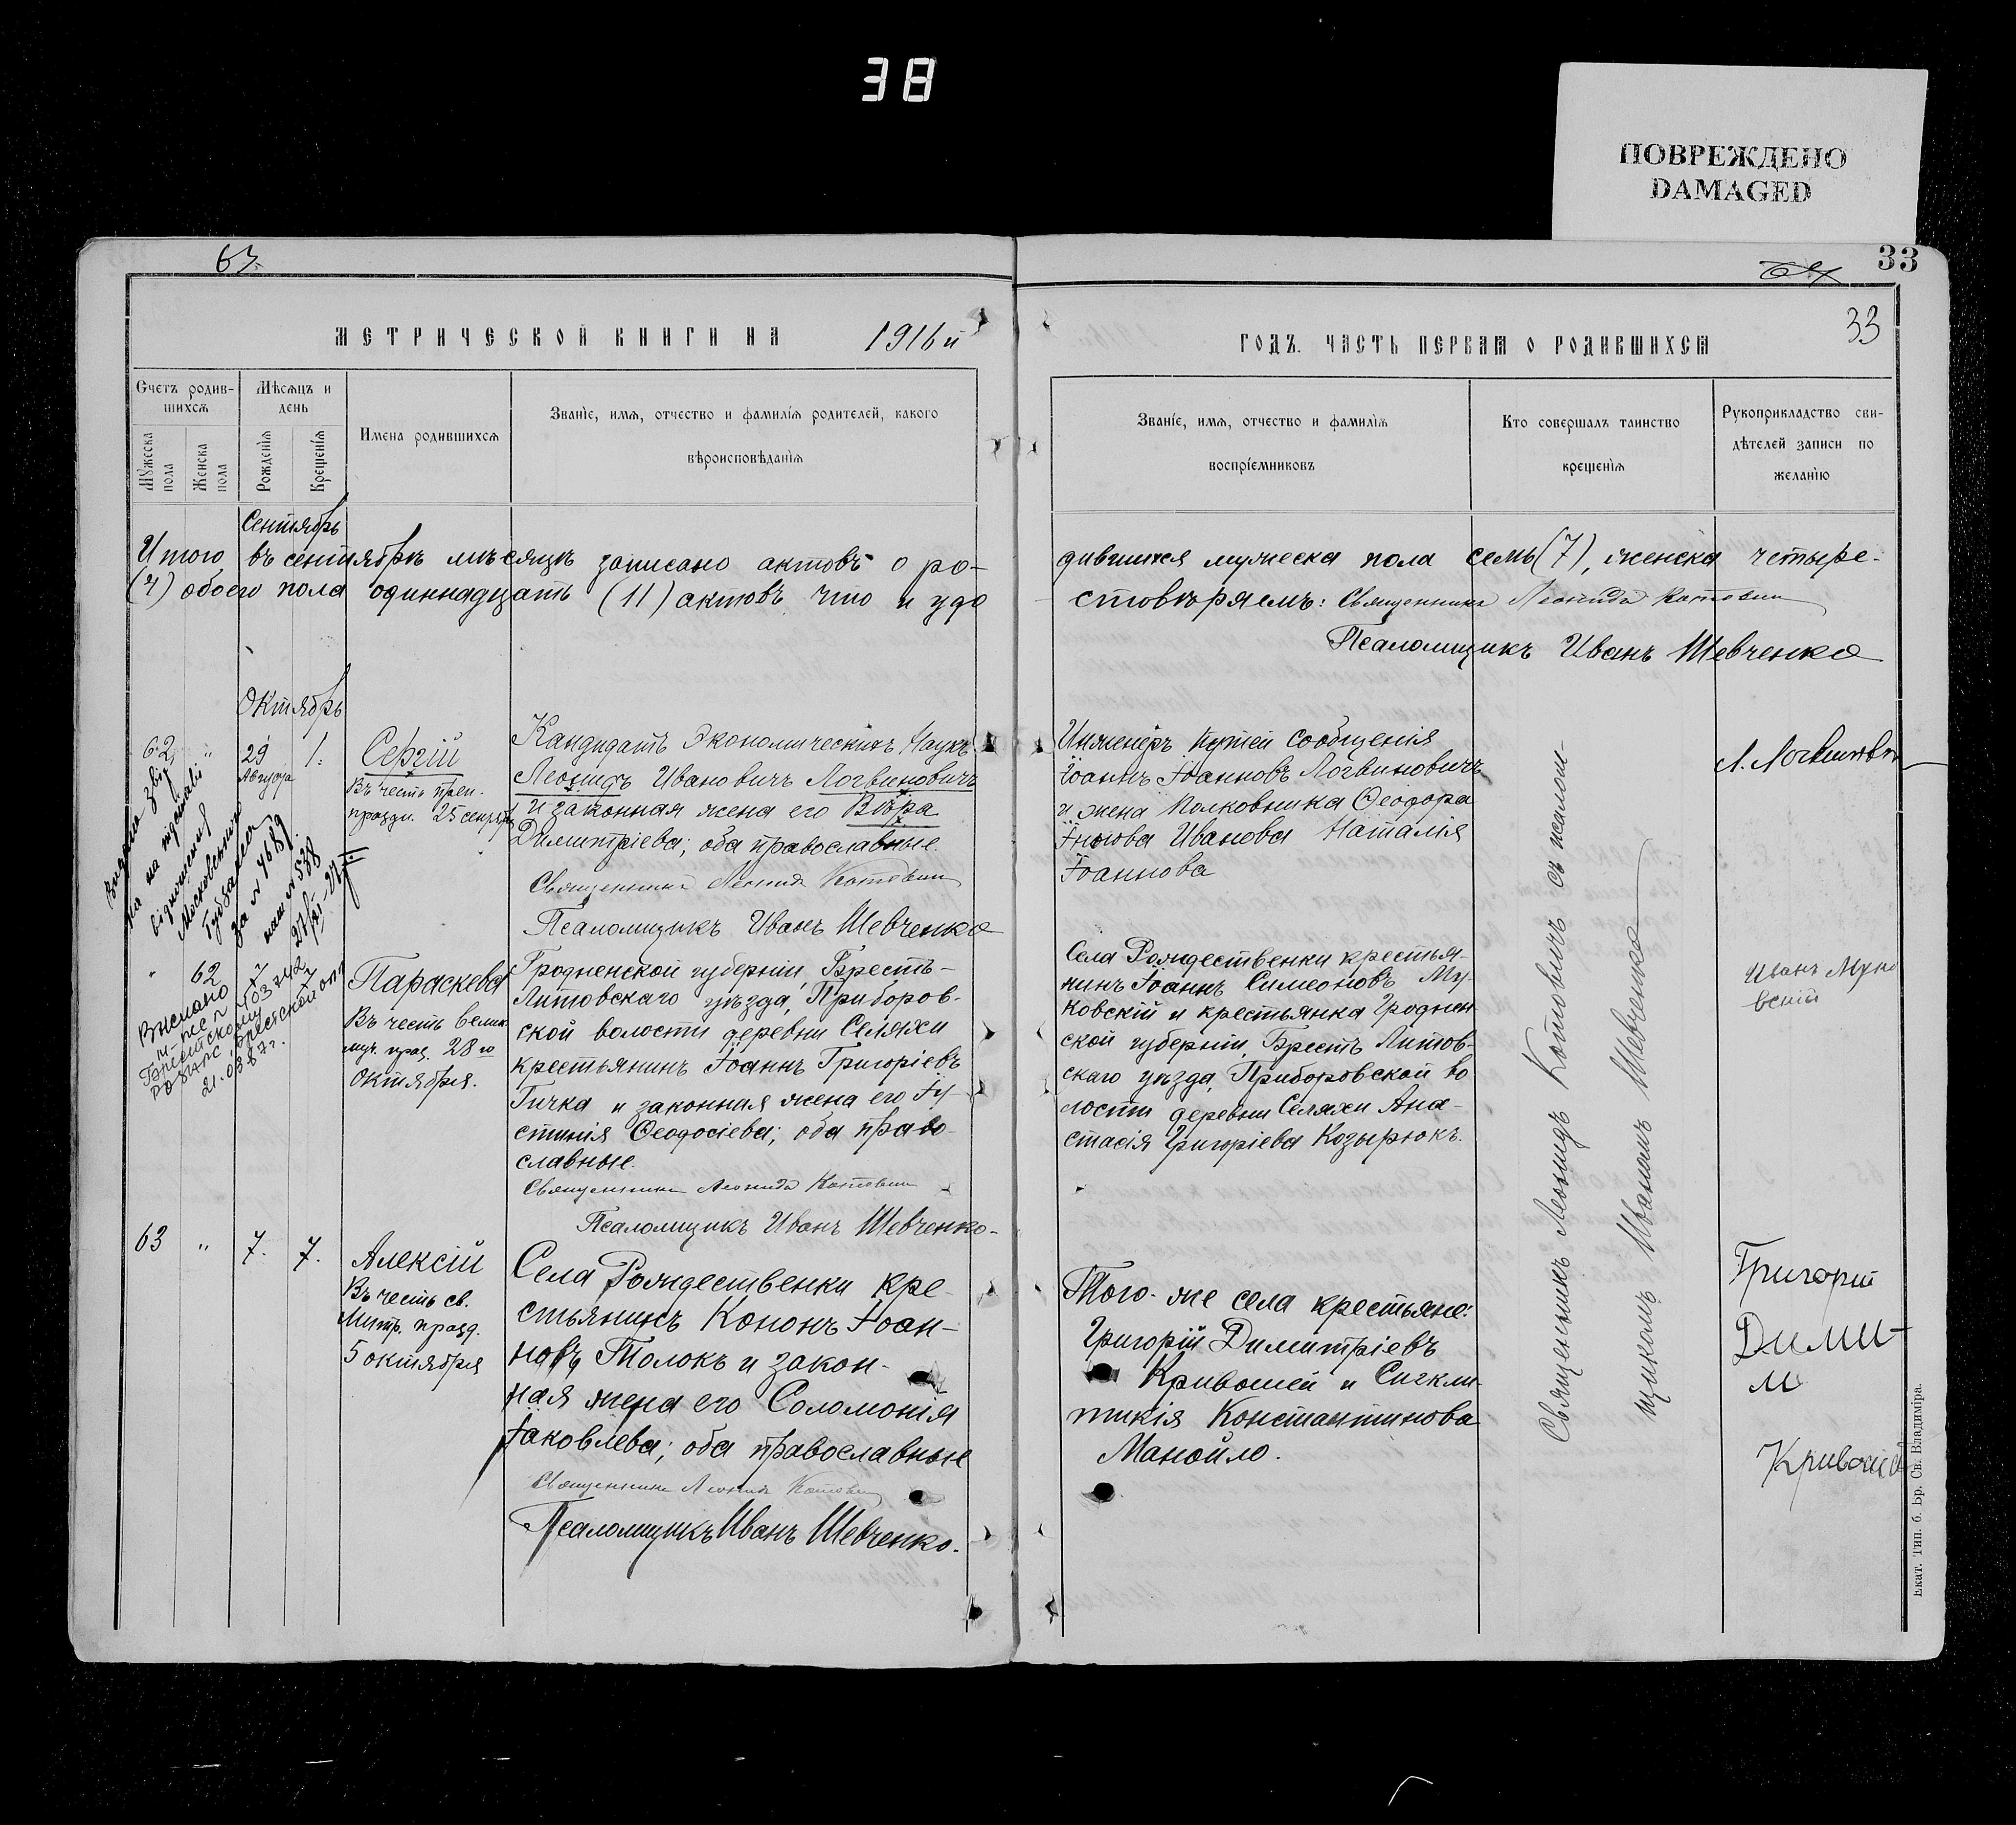 38
ПОВРЕЖДЕНО
DAMAGED
63.
33
33
МЕТРИЧЕСКОЙ КНИГИ НА 1916й
ГОДЪ. ЧАСТЬ ПЕРВАЯ О РОДИВШИХСЯ
Счетъ родив-
шихся
Мужеска пола
Женска пола
Мѣсяцъ и
день
Рожденія
Крещенія
Имена родившихся
Званіе, имя, отчество и фамилія родителей, какого
вѣроисповѣданія
Званіе, имя, отчество и фамилія
воспріемниковъ
Кто совершалъ таинство
крещенія
Рукоприкладство сви-
дѣтелей записи по
желанію
Сентябрь
Итого въ сентябрѣ мѣсяцѣ записано актовъ о ро-
дившихся мужеска пола семь (7), женска четыре-
(4) обоего пола одиннадцать (11) актовъ что и удо
стовѣряемъ: Священникъ Леонидъ Котовичъ
Псаломщикъ Иванъ Шевченко
Октябрь
62
"
29
Августа
1.
Сергій
Въ честь преп.
праздн. 25 сентября
Кандидатъ Экономическихъ Наукъ
Леонидъ Ивановичъ Логвиновичъ
и законная жена его Вѣра
Димитріева; оба православные.
Священникъ Леонидъ Котовичъ
Псаломщикъ Иванъ Шевченко
Инженеръ Путей Сообщенія
Іоаннъ Іоанновъ Логвиновичъ
и жена Полковника Ѳеодора
Иванова Наталія
Іоаннова
Видана
на підставі
відношення
Московського
за № 7689
наш № 538
"
62
Выслано
21.03.87г.
Параскева
Въ честь велик.
муч. праз. 28го
Октября.
Гродненской губерніи, Брестъ-
Литовскаго уѣзда, Приборов-
ской волости деревни Селяхи
крестьянинъ Іоаннъ Григоріевъ
Гичка и законная жена его Іу-
стинія Ѳеодосіева; оба право-
славные.
Священникъ Леонидъ Котовичъ
Псаломщикъ Иванъ Шевченко-
Села Рождественки крестья-
нинъ Іоаннъ Симеоновъ Му-
ковскій и крестьянка Гроднен
ской губерніи, Брестъ Литов-
скаго уѣзда, Приборовской во
лости деревни Селяхи Ана-
стасія Григоріева Козырюкъ.
Иванъ Муко
вскій
63
"
7.
7.
Алексій
Въ честь св.
Митр. празд.
5 октября
Села Рождественки кре-
стьянинъ Кононъ Іоан-
новъ Толокъ и закон-
ная жена его Соломонія
Іаковлева; оба православные
Священникъ Леонидъ Котовичъ
Псаломщикъ Иванъ Шевченко.
Того-же села крестьяне:
Григорій Димитріевъ
Кривошей и Сигкли-
тикія Константинова
Манойло.
Священникъ Леонидъ Котовичъ съ псалом-
щикомъ Иваномъ Шевченко
Григорій
Дими-
м
Кривошей
Екат. Тип. б. Бр. Св. Владиміра.